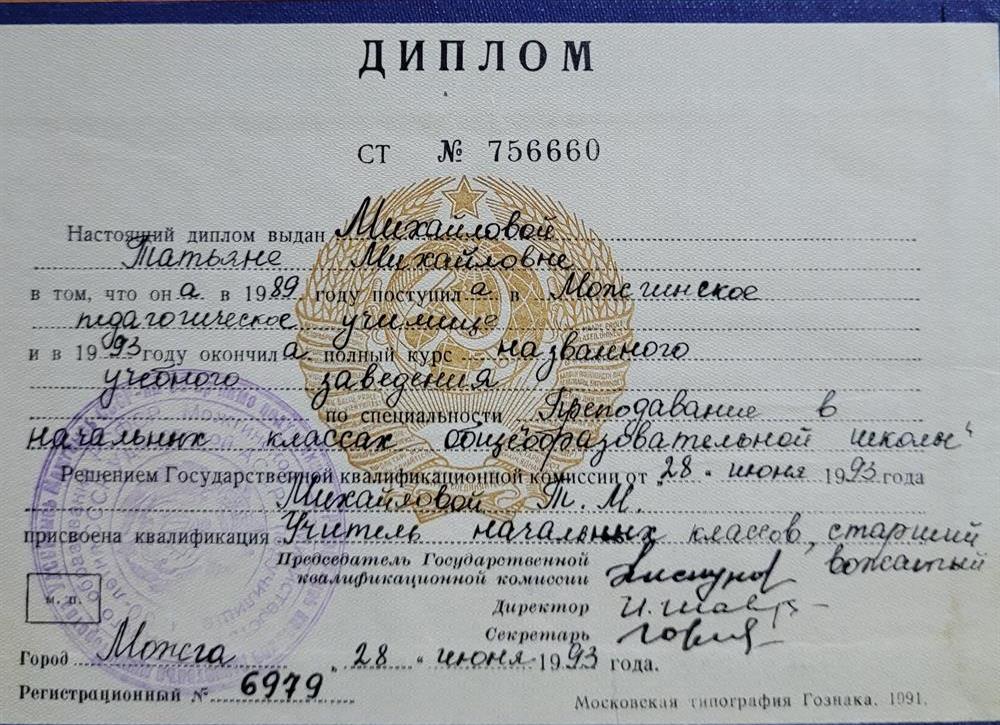 ДИПЛОМ
СТ № 756660
Настоящий диплом выдан Михайловой
Татьяне Михайловне
в том, что он а в 1989 году поступил а в Можгинское
педагогическое училище
и в 1993 году окончил а полный курс названного
учебного заведения
по специальности „Преподавание в
начальных классах общеобразовательной школы“
Решением Государственной квалификационной комиссии от „28“ июня 1993 года
Михайловой Т. М.
присвоена квалификация Учитель начальных классов, старший
вожатый
Председатель Государственной
квалификационной комиссии
Директор
Секретарь
М. П.
Город Можга „28“ июня 1993 года.
Регистрационный № 6979
Московская типография Гознака. 1991.